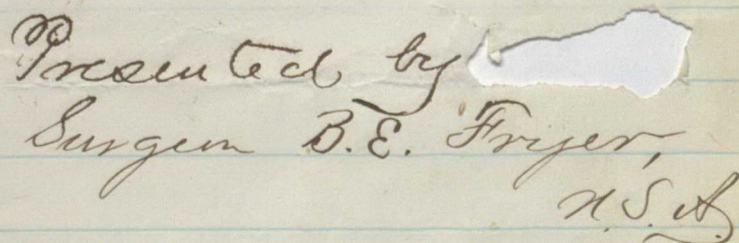 Presented by
Surgeon B.E. Fryer,
U.S.A.